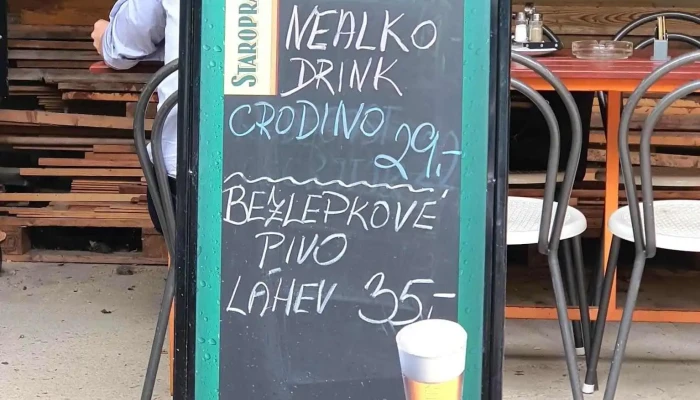 NEALKO
DRINK
CRODINO
29,-
BEZLEPKOVÉ
PIVO
LÁHEV 35,-